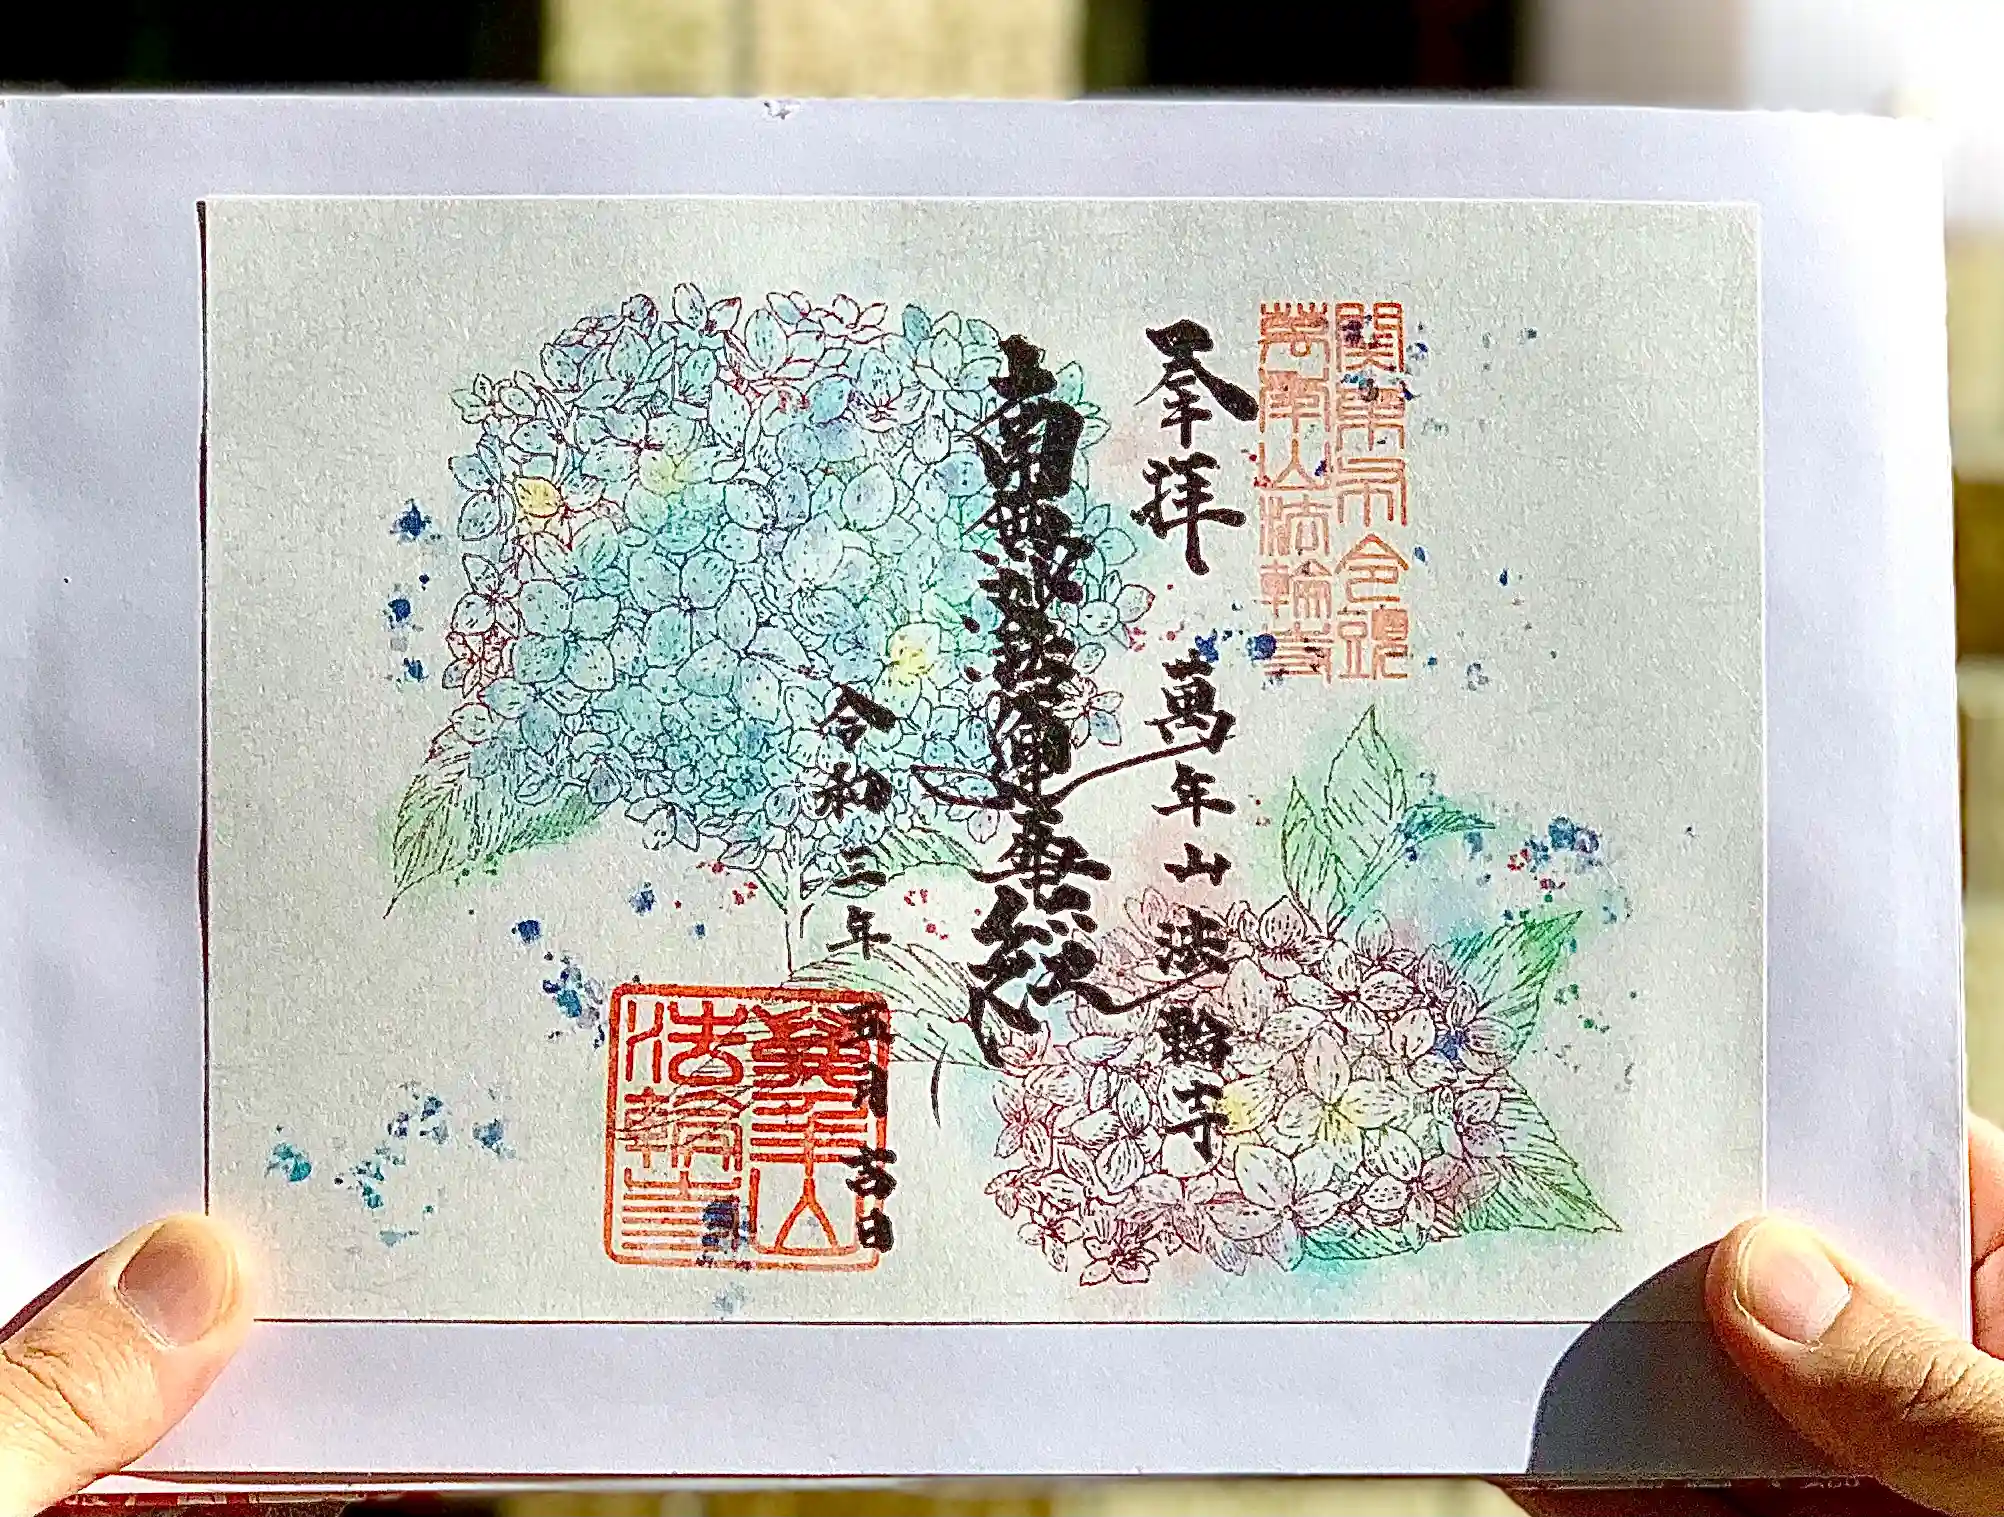 萬年山法輪寺
奉拝
萬年山法輪寺
南無妙法蓮華経
令和三年五月吉日
萬年山
法輪寺